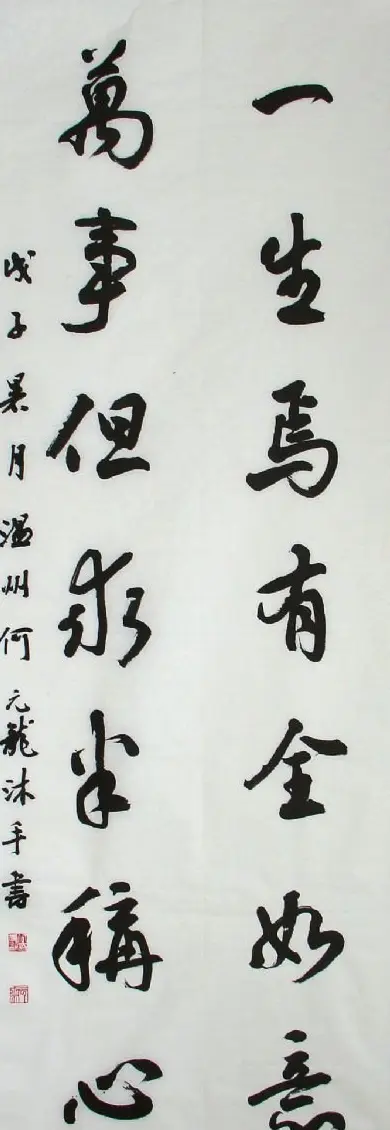 一生焉有全如意
萬事但求半稱心
戊子暑月温州何元龍沐手書